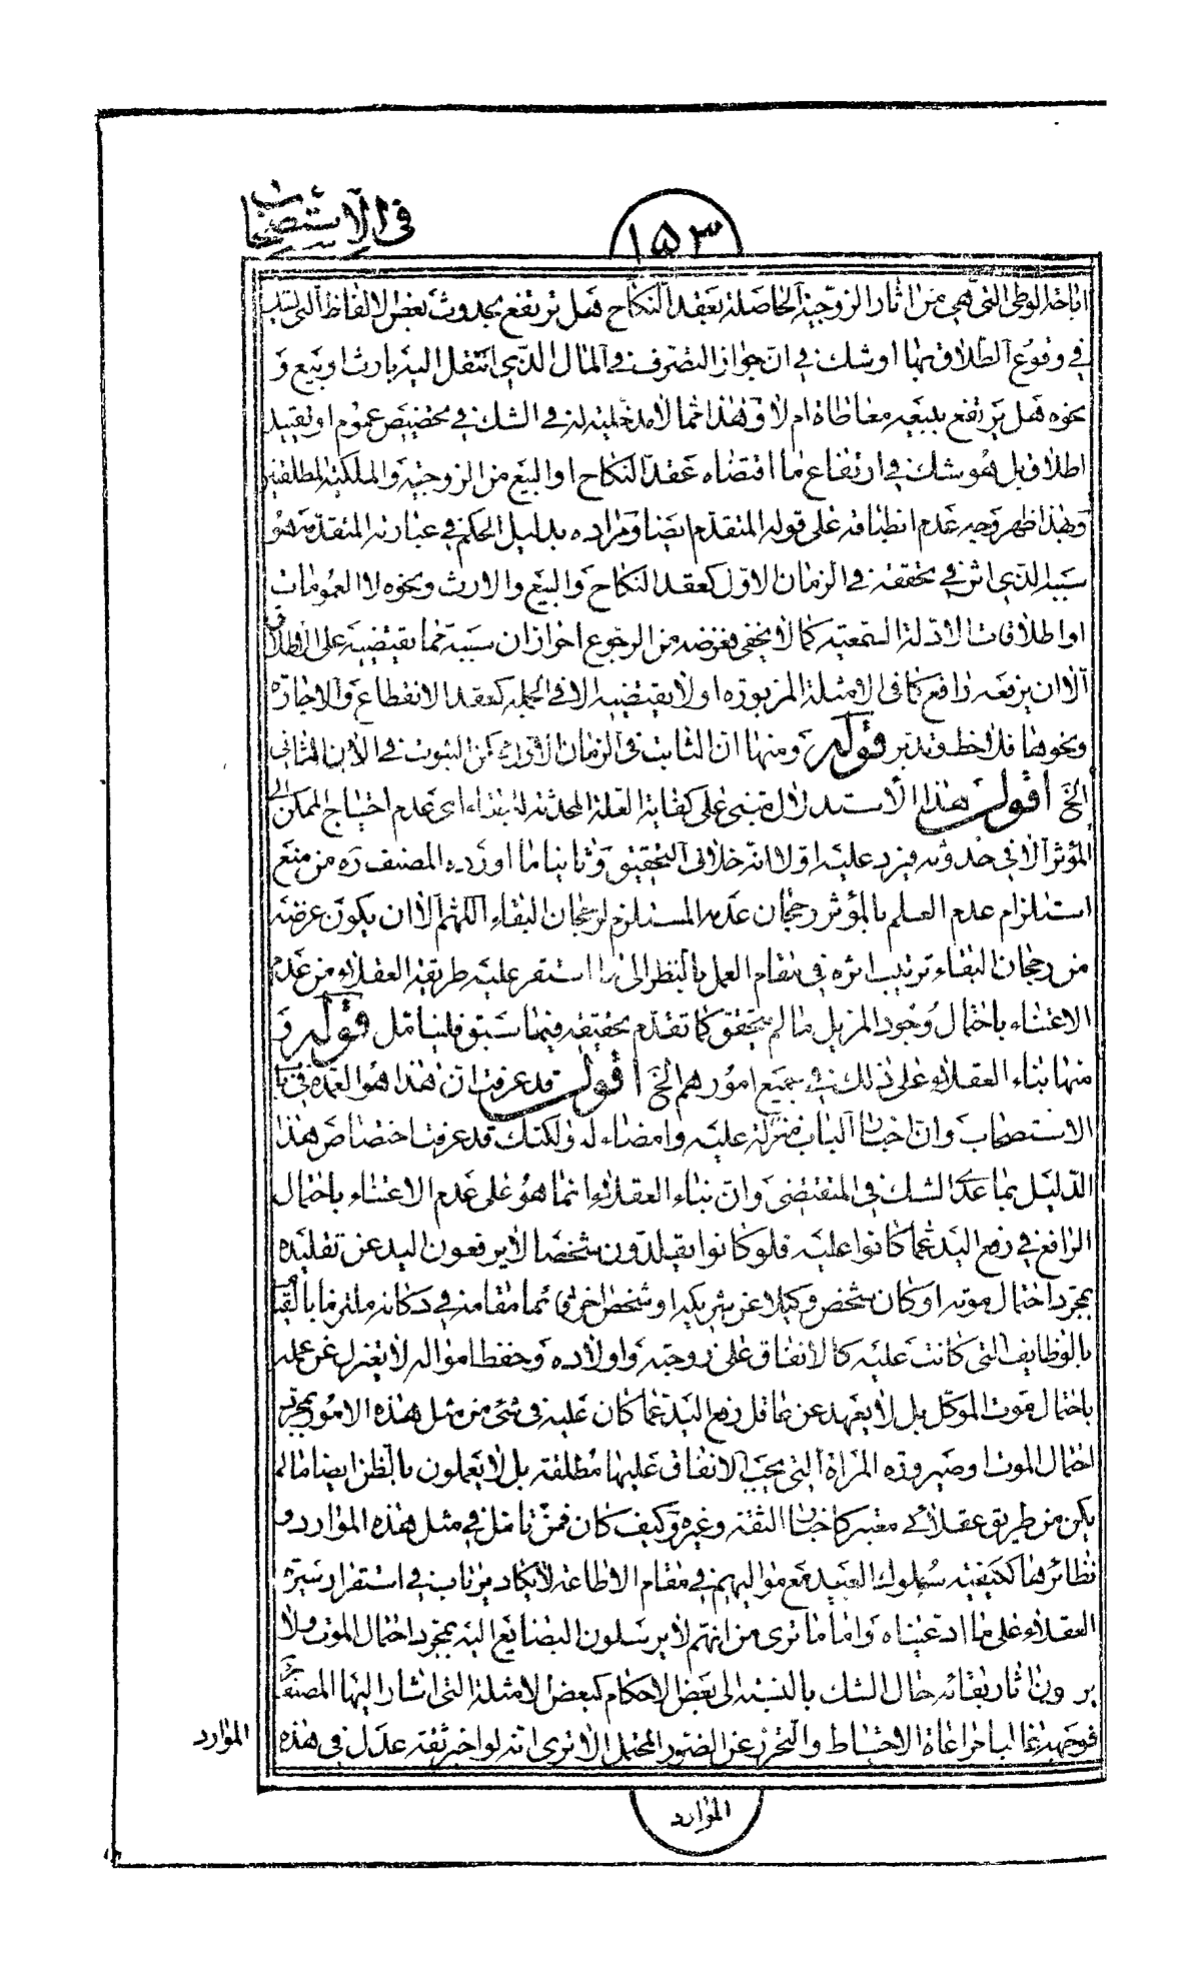 في الاستصحاب
١٥٣
اباحة الوطى التى هي من اثار الزوجية الحاصلة بعقد النكاح فهل ترتفع بحدوث بعض الالفاظ التى شك
في وقوع الطلاق بها او شك في ان جواز التصرف في المال الذي انتقل اليه بارث او بيع و
نحوه فهل يرتفع ببيعه معاطاة ام لا وهذا مما لا مدخلية له في الشك في تخصيص عموم او تقييد
اطلاق بل هو شك في ارتفاع ما اقتضاه عقد النكاح او البيع من الزوجية والملكية المطلقين
وبهذا ظهر وجه عدم انطباقه على قوله المتقدم ايضا ومراده بدليل الحكم في عبارته المتقدمة هو
سببه الذي اثر في تحققه في الزمان الاول كعقد النكاح والبيع والارث ونحوه لا العمومات
او اطلاقات الادلة السمعية كما لا يخفى فغرضه من الرجوع احراز ان سببه مما يقتضيه على الاطلاق
الا ان يرفعه رافع كما في الامثلة المزبورة او لا يقتضيه الا في الجملة كعقد الانقطاع والاجارة
ونحوهما فلاحظ وتدبر قوله ومنها ان الثابت في الزمان الاول ممكن الثبوت في الان الثانى
الخ اقول هذا الاستدلال مبنى على كفاية العلة المحدثة للبقاء اى عدم احتياج الممكن الى
المؤثر الا في حدوثه فيرد عليه اولا انه خلاف التحقيق وثانيا ما اورده المصنف ره من منع
استلزام عدم العلم بالمؤثر رجحان عدمه المستلزم لرجحان البقاء اللهم الا ان يكون غرضه
من رجحان البقاء ترتيب اثره في مقام العمل بالنظر الى ما استقر عليه طريقة العقلاء من عدم
الاعتناء باحتمال وجود المزيل ما لم يتحقق كما تقدم تحقيقه فيما سبق فليتامل قوله و
منها بناء العقلاء على ذلك في جميع امورهم الخ اقول قد عرفت ان هذا هو العمدة في با
الاستصحاب وان اخبار الباب منزلة عليه وامضاء له ولكنك قد عرفت اختصاص هذا
الدليل بما عدا الشك في المقتضى وان بناء العقلاء انما هو على عدم الاعتناء باحتمال
الرافع في رفع اليد عما كانوا عليه فلو كانوا يقلدون شخصا لا يرفعون اليد عن تقليده
بمجرد احتمال موته او كان شخص وكيلا عن شريكه او شخص اخر قائما مقامه في دكانه ملتزما بالقيا
بالوظايف التى كانت عليه كالانفاق على زوجته واولاده وحفظ امواله لا يعزل عن عمله
باحتمال موت الموكل بل لا يعهد عن عاقل رفع اليد عما كان عليه في شئ من مثل هذه الامور بمجرد
احتمال الموت او صيرورة المراة التى يجب الانفاق عليها مطلقة بل لا يعملون بالظن ايضا ما لم
يكن من طريق عقلائى معتبر كاخبار الثقة وغيره وكيف كان فمن تامل في مثل هذه الموارد و
نظائرها ككيفية سلوك العبيد مع مواليهم في مقام الاطاعة لا يكاد يرتاب في استقرار سيرة
العقلاء على ما ادعيناه واما ما ترى من انهم لا يرسلون البضايع اليه بمجرد احتمال الموت ولا
يرون اثار بقائه حال الشك بالنسبة الى بعض الاحكام كبعض الامثلة التى اشار اليها المصنف
فوجهه غالبا مراعاة الاحتياط والتحرز عن الضرر المحتمل الا ترى انه لو اخبر ثقة عدل في هذه
الموارد
الموارد